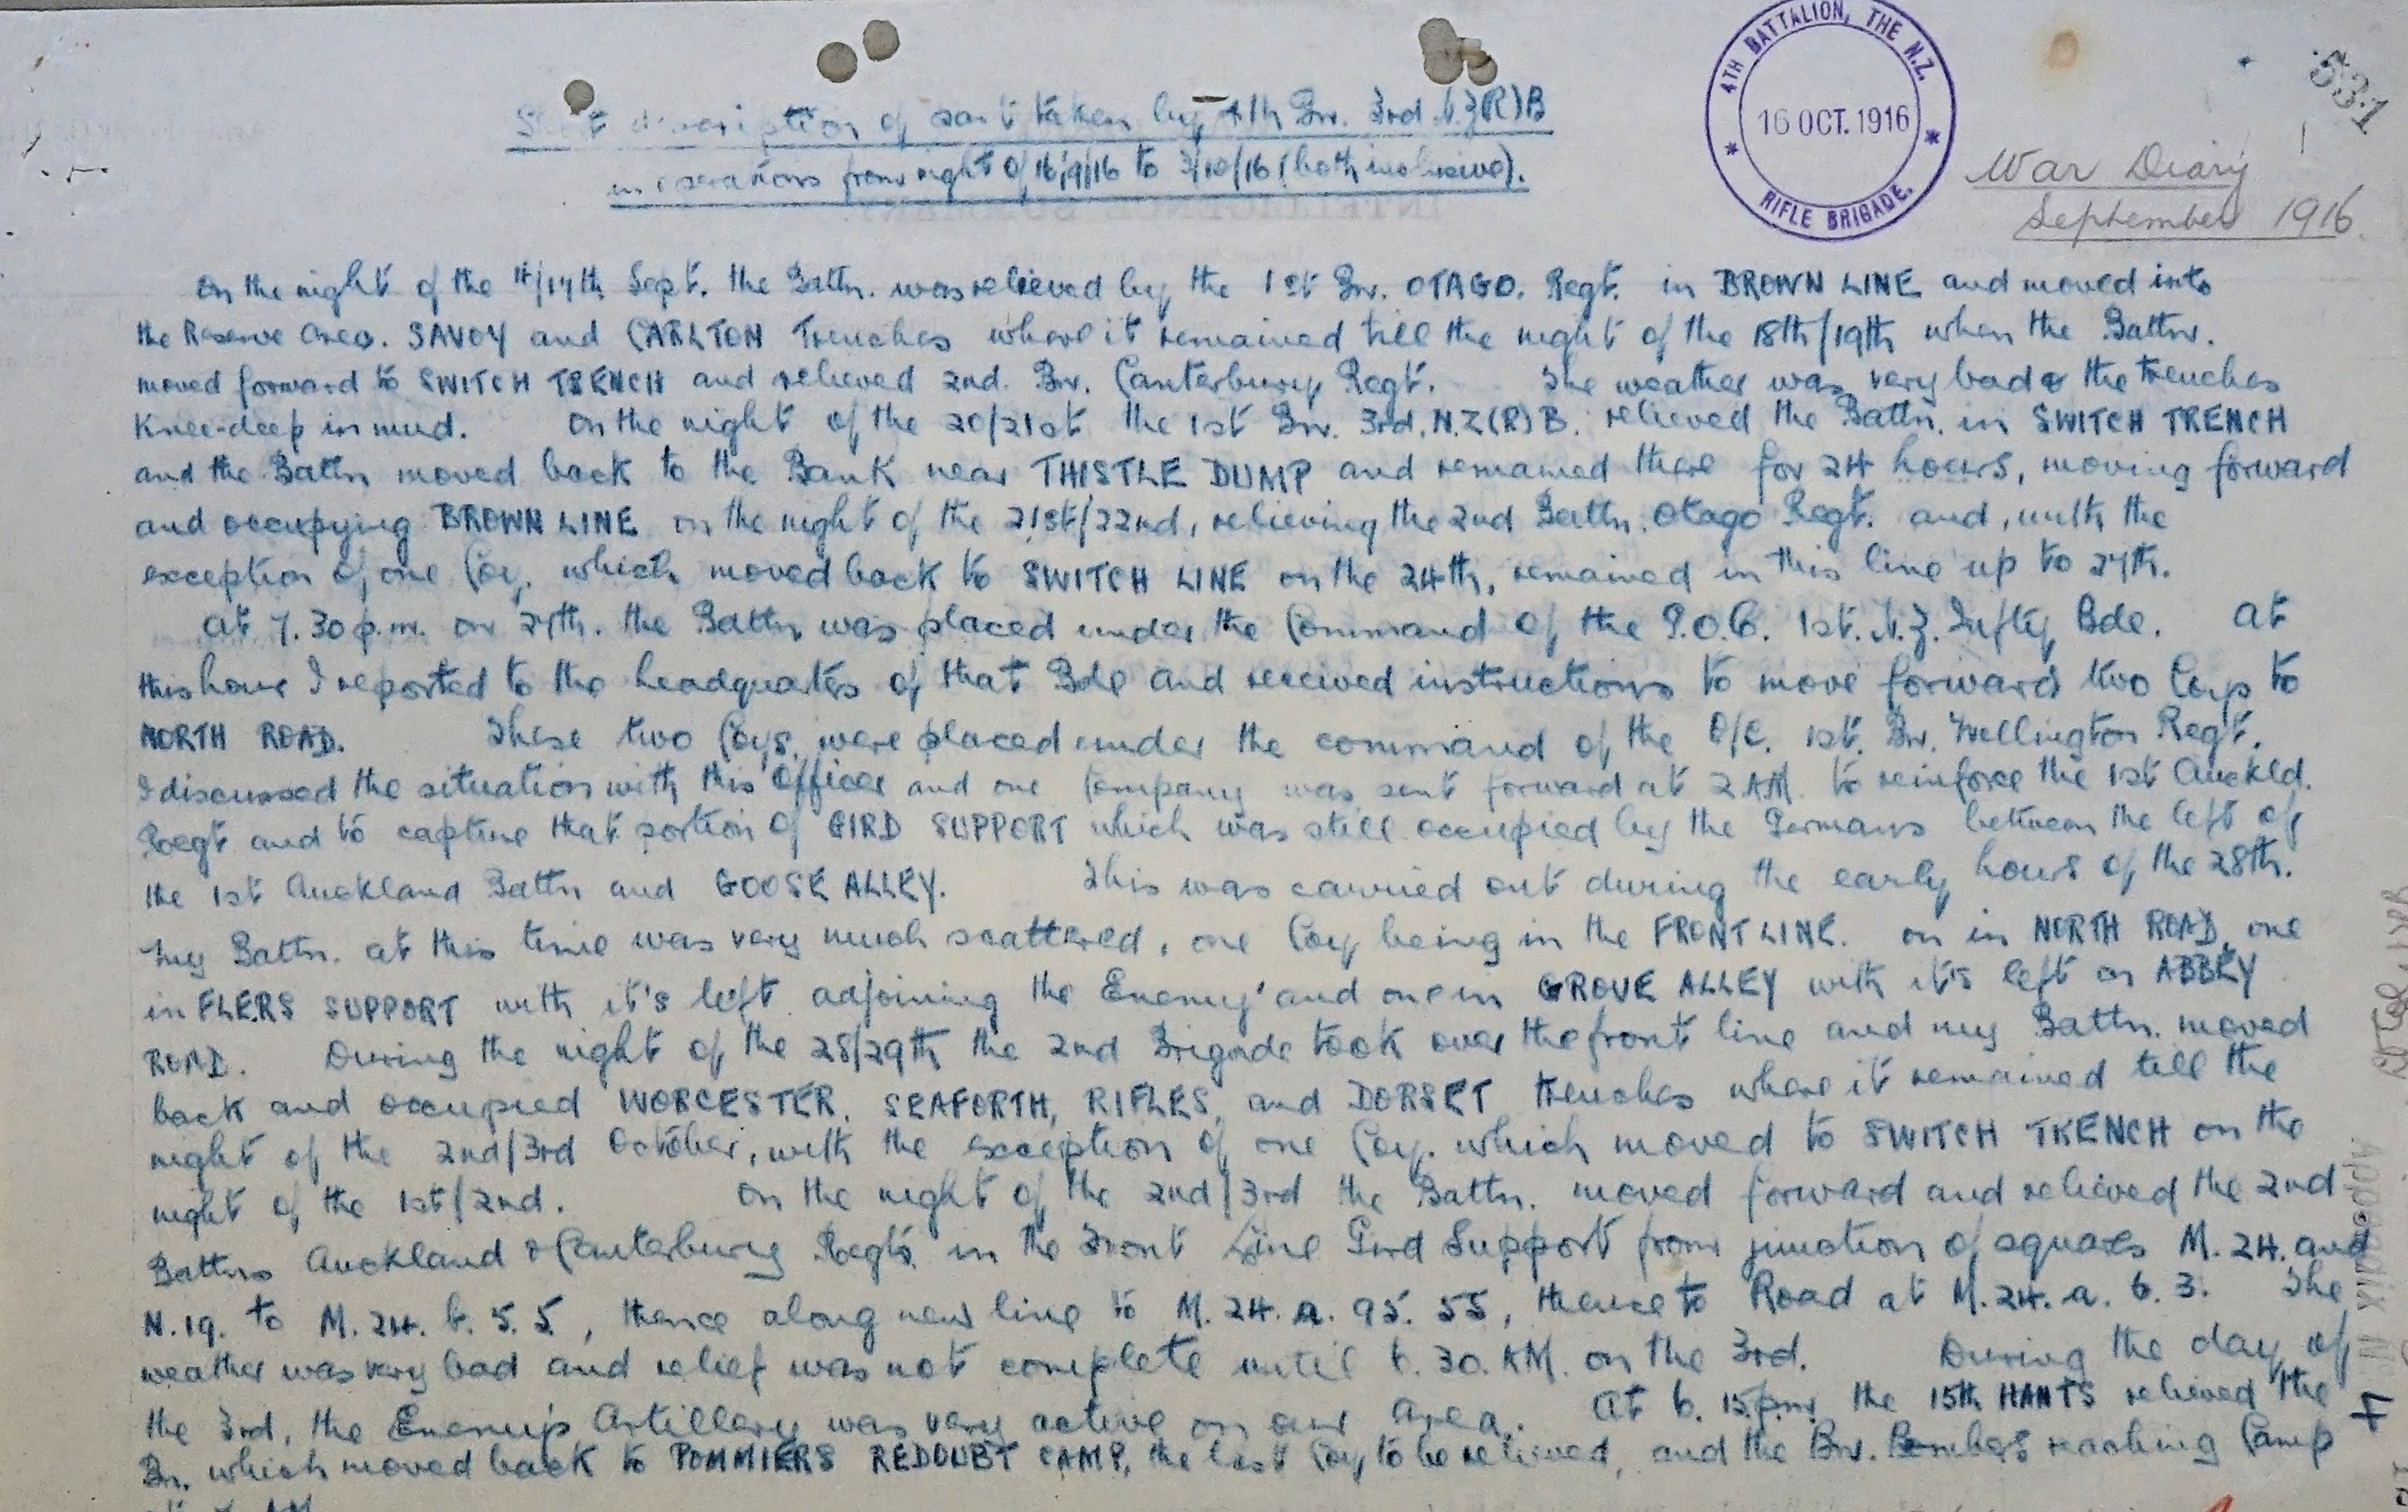 4TH BATTALION, THE N.Z.
16 OCT. 1916
RIFLE BRIGADE.
531
War Diary
September 1916.
Short description of part taken by 4th Bn. 3rd N.Z(R)B
in operations from night of 16/9/16 to 3/10/16 (both inclusive).
On the night of the 16/17th Sept. the Battn. was relieved by the 1st Bn. OTAGO. Regt. in BROWN LINE and moved into
the Reserve Area. SAVOY and CARLTON Trenches where it remained till the night of the 18th/19th when the Battn.
moved forward to SWITCH TRENCH and relieved 2nd. Bn. Canterbury Regt. The weather was very bad & the trenches
Knee-deep in mud. On the night of the 20/21st the 1st Bn. 3rd. N.Z(R)B. relieved the Battn. in SWITCH TRENCH
and the Battn moved back to the Bank near THISTLE DUMP and remained there for 24 hours, moving forward
and occupying BROWN LINE on the night of the 21st/22nd, relieving the 2nd Battn. Otago Regt. and, with the
exception of one Coy. which moved back to SWITCH LINE on the 24th, remained in this line up to 27th.
At 7.30 p.m. on 27th. the Battn was placed under the Command of the G.O.C. 1st. N.Z. Infty Bde. At
this hour I reported to the headquarters of that Bde and received instructions to move forward two Coys to
NORTH ROAD. These two Coys. were placed under the command of the O/C. 1st. Bn. Wellington Regt.
I discussed the situation with this Officer and one Company was sent forward at 2 AM. to reinforce the 1st Auckld.
Regt and to capture that portion of GIRD SUPPORT which was still occupied by the Germans between the left of
the 1st Auckland Battn and GOOSE ALLEY. This was carried out during the early hours of the 28th.
My Battn. at this time was very much scattered, one Coy being in the FRONT LINE. on in NORTH ROAD, one
in FLERS SUPPORT with it's left adjoining the Enemy and one in GROVE ALLEY with it's left on ABBEY
ROAD. During the night of the 28/29th the 2nd Brigade took over the front line and my Battn. moved
back and occupied WORCESTER, SEAFORTH, RIFLES, and DORSET trenches where it remained till the
night of the 2nd/3rd October, with the exception of one Coy. which moved to SWITCH TRENCH on the
night of the 1st/2nd. On the night of the 2nd/3rd the Battn. moved forward and relieved the 2nd
Battns Auckland & Canterbury Regts in the Front Line Gird Support from junction of squares M. 24. and
N. 19. to M. 24. b. 5. 5, thence along new line to M. 24. a. 95. 55, thence to Road at M. 24. a. 6. 3. The
weather was very bad and relief was not complete until 6. 30. AM. on the 3rd. During the day of
the 3rd, the Enemy's Artillery was very active on our area. At 6. 15 p.m. the 15th HANTS relieved the
Bn. which moved back to POMMIERS REDOUBT CAMP, the last Coy to be relieved, and the Bn. Bombers reaching Camp
AM
Appendix